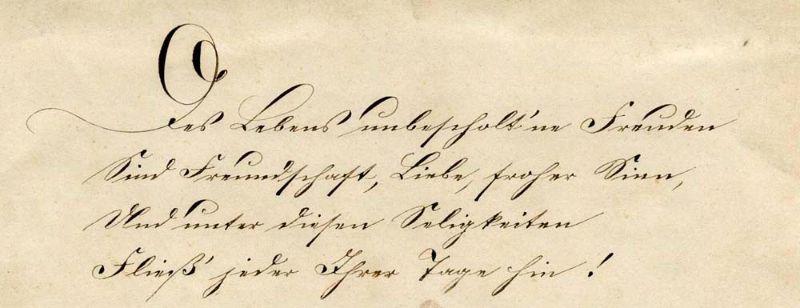 Des Lebens unbescholt'ne Freuden
Sind Freundschaft, Liebe, froher Sinn,
Und unter diesen Seligkeiten
Fließ' jeder Ihrer Tage hin!